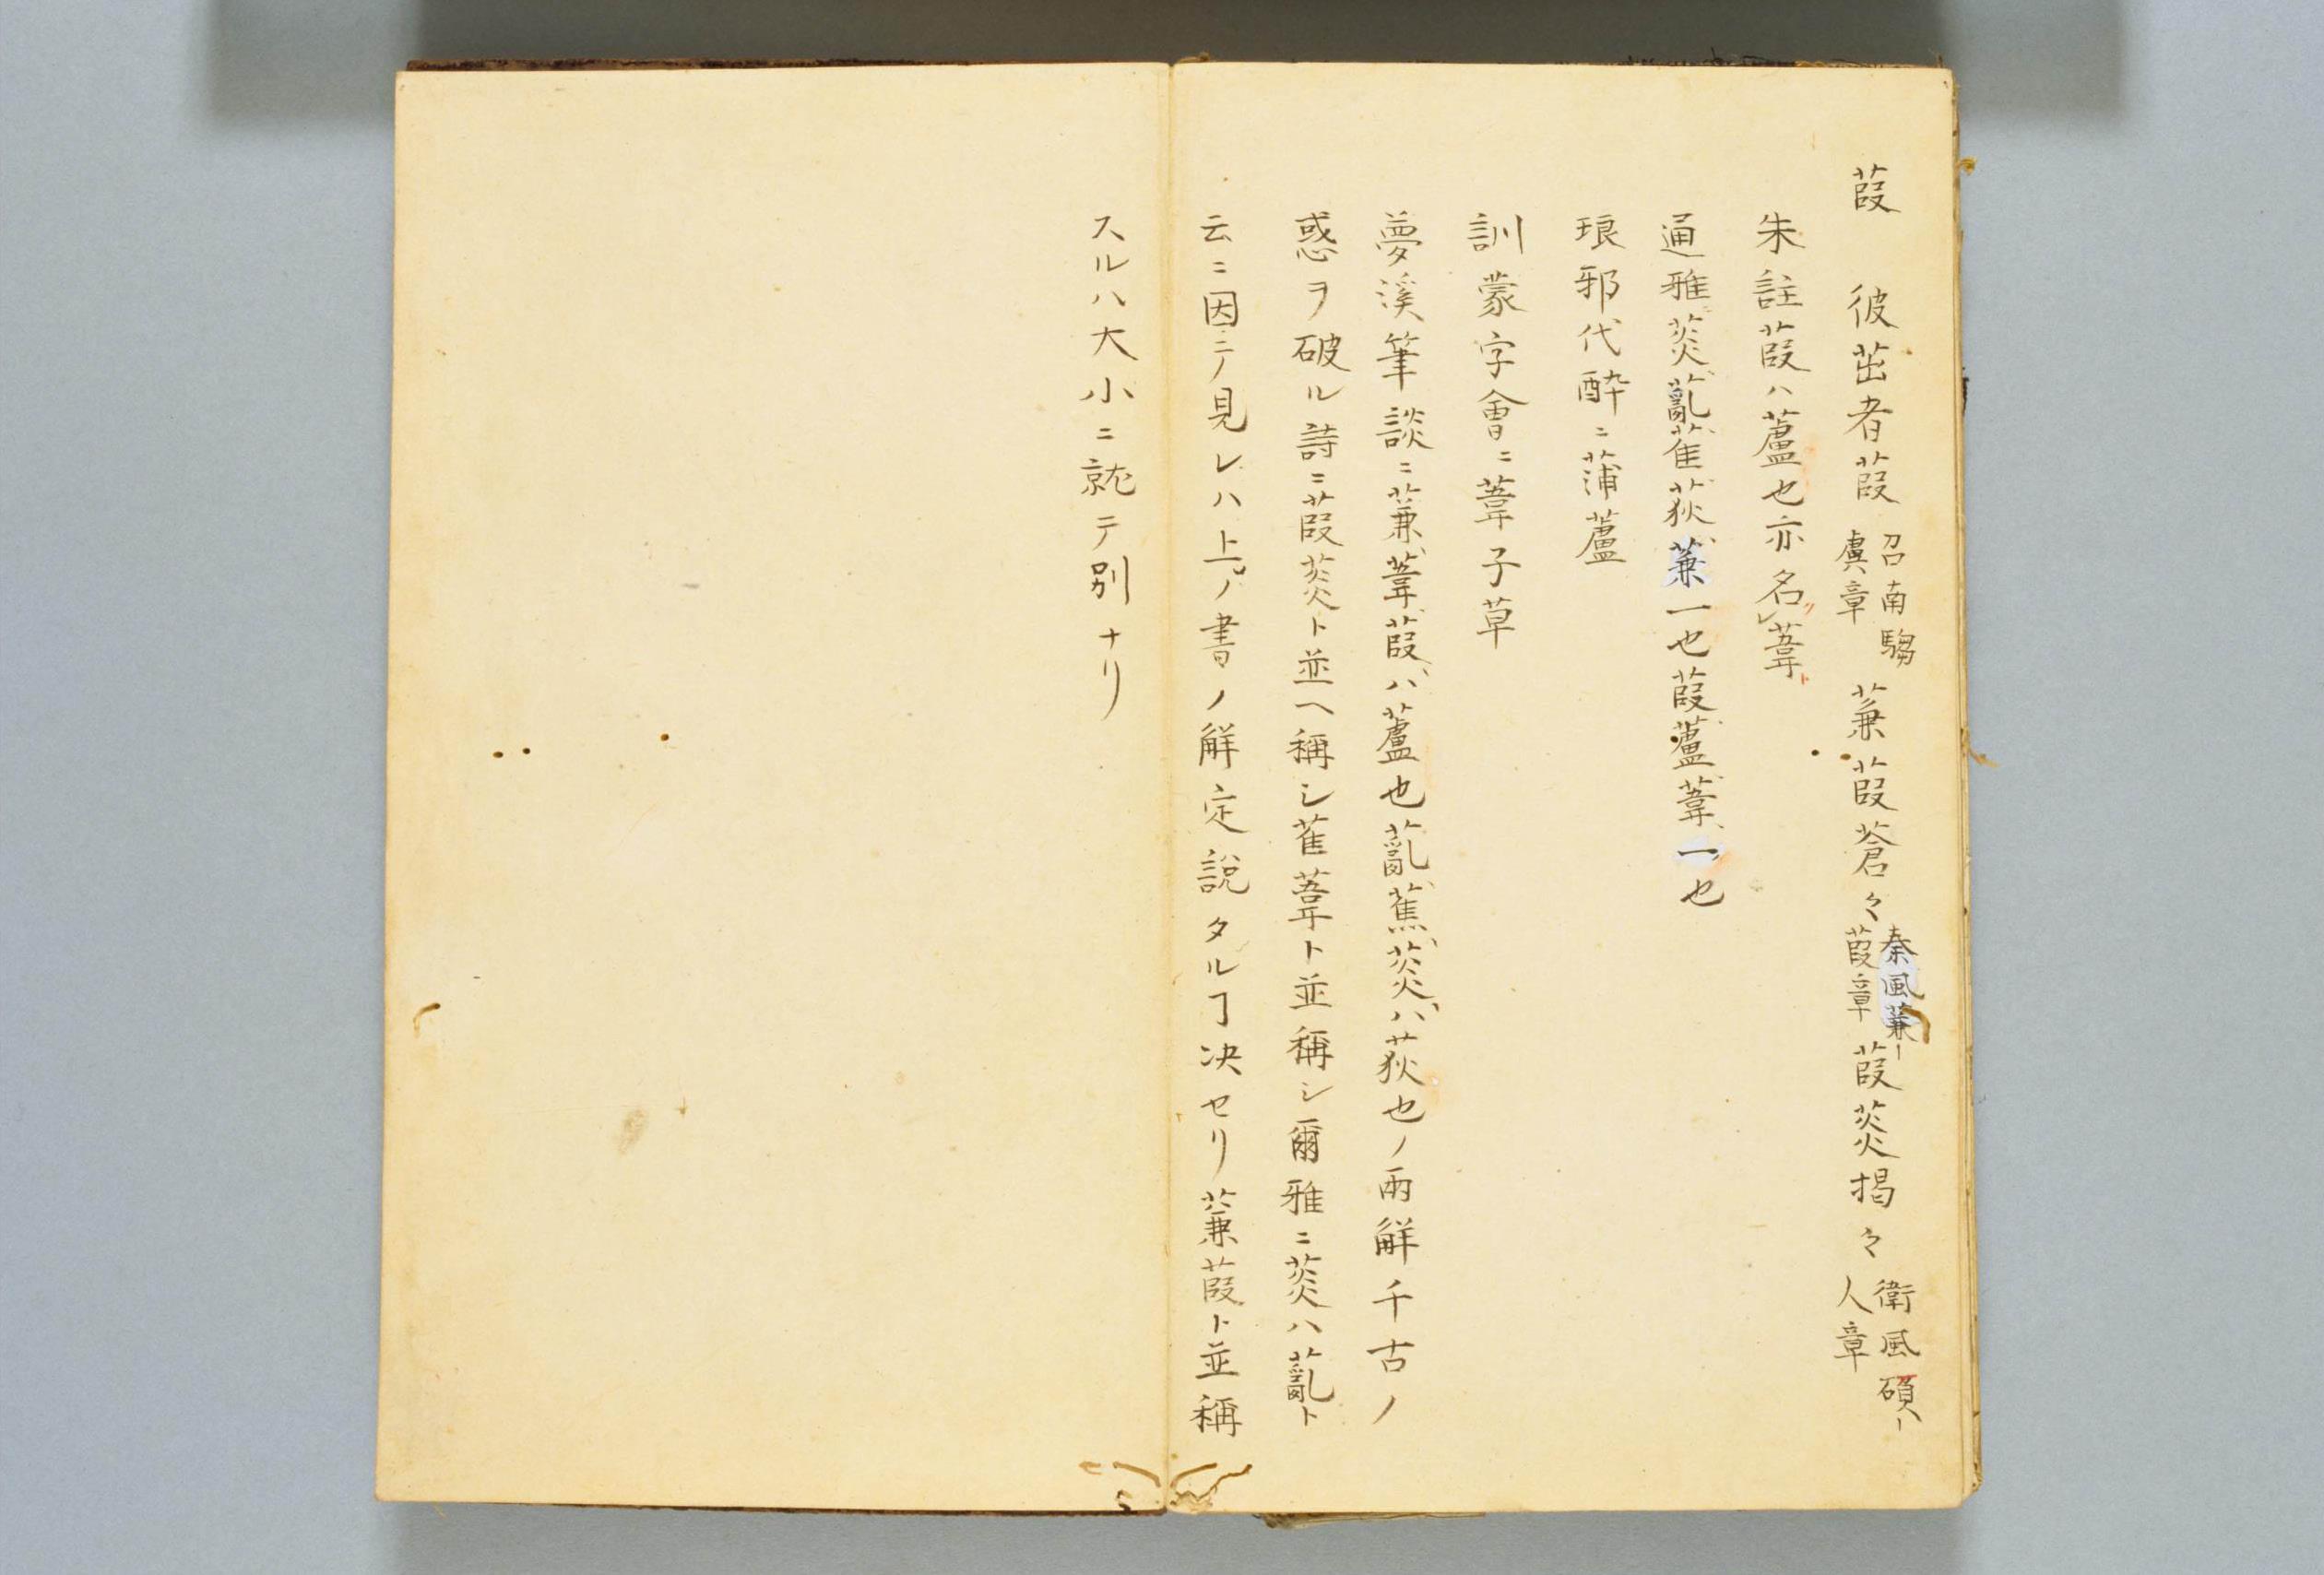 葭 彼茁者葭 召南騶虞章 蒹葭蒼々 秦風蒹葭章 葭菼揭々 衛風碩人章
朱註葭ハ蘆也亦名レ葦
通雅菼薍萑荻蒹一也葭蘆葦一也
琅邪代酔ニ蒲蘆
訓蒙字會ニ葦子草
夢溪筆談ニ蒹葦葭ハ蘆也薍蕉菼ハ荻也ノ兩解千古ノ
惑ヲ破ル詩ニ葭菼ト並ヘ稱シ萑葦ト並稱シ爾雅ニ菼ハ薍ト
云ニ因テ見レハ上ノ書ノ解定説タルヿ决セリ蒹葭ト並稱
スルハ大小ニ就テ別ナリ